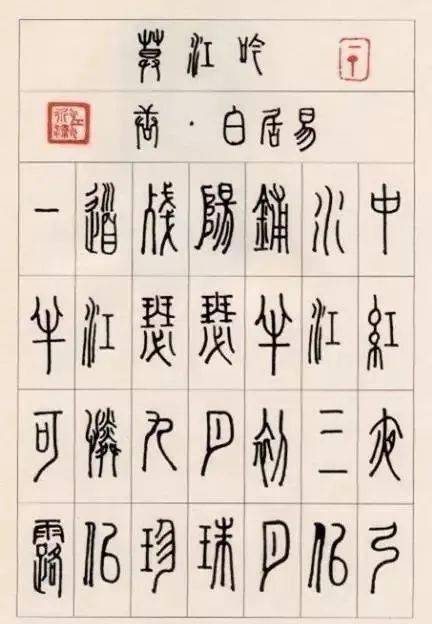 暮江吟
唐·白居易
一道殘陽鋪水中
半江瑟瑟半江紅
可憐九月初三夜
露似珍珠月似弓